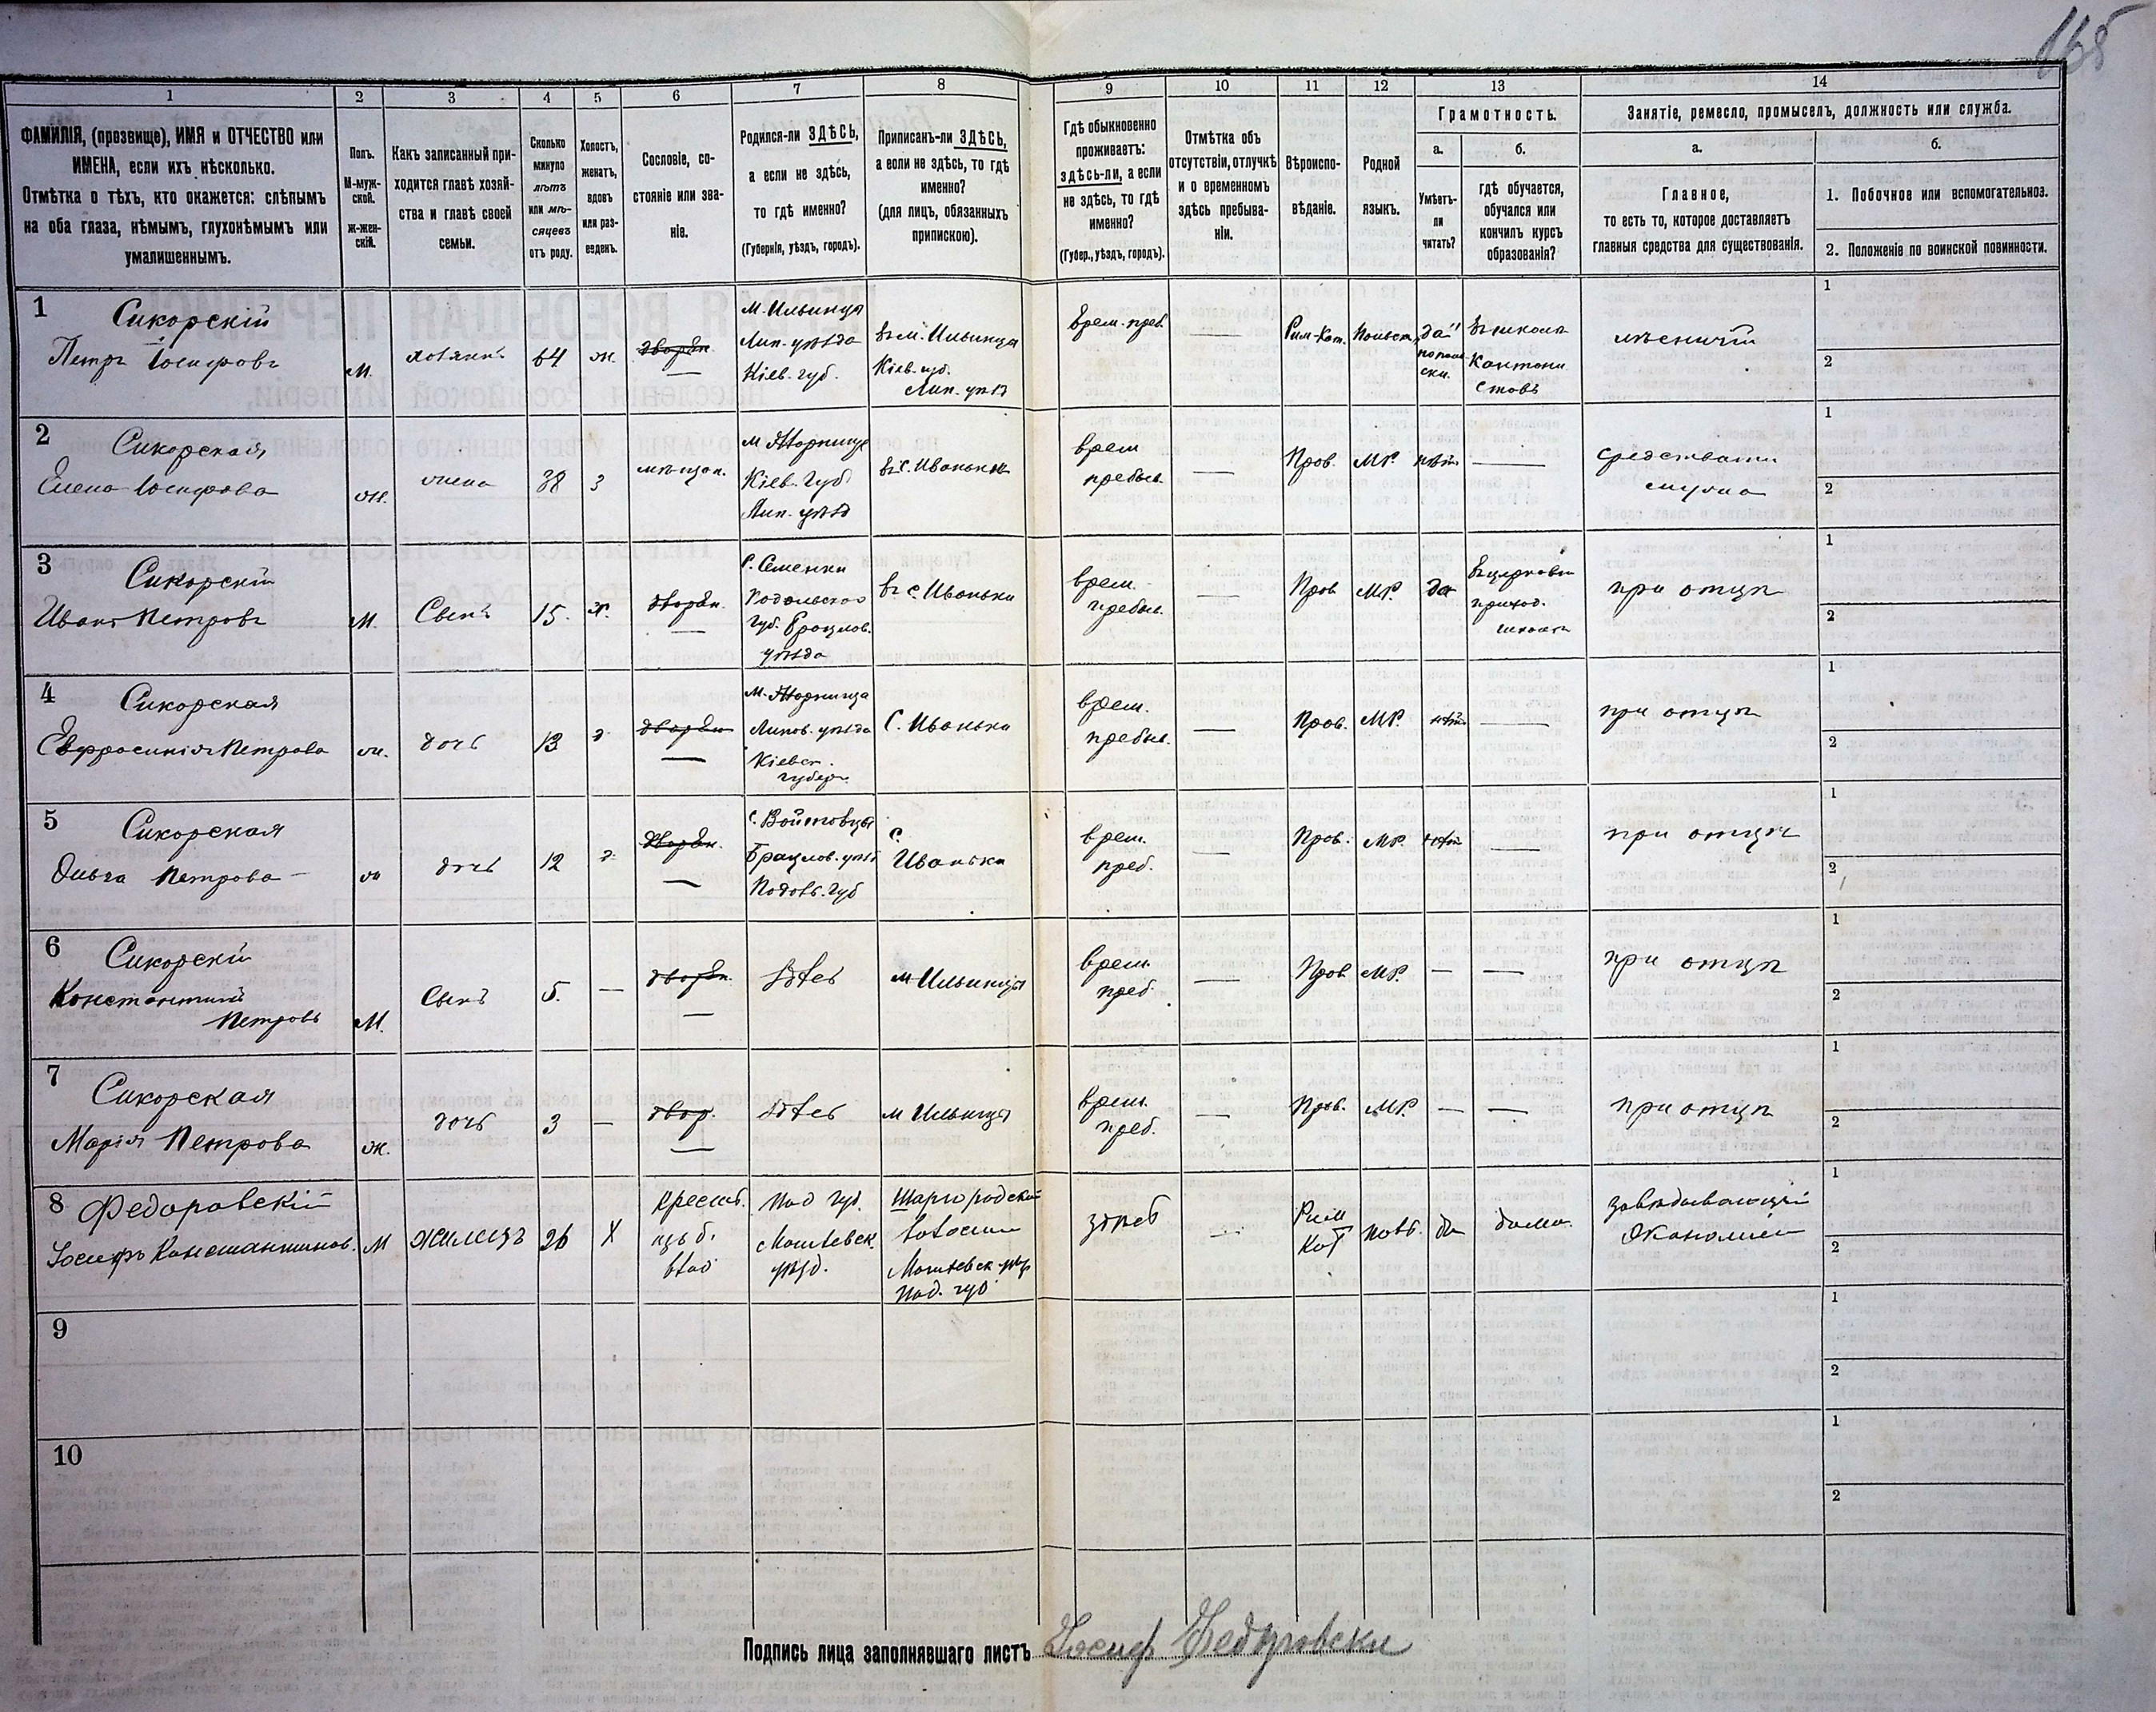 165
1 2 3 4 5 6 7 8 9 10 11 12 13 14
ФАМИЛІЯ, (прозвище), ИМЯ и ОТЧЕСТВО или
ИМЕНА, если ихъ нѣсколько.
Отмѣтка о тѣхъ, кто окажется: слѣпымъ
на оба глаза, нѣмымъ, глухонѣмымъ или
умалишеннымъ.
Полъ.
М-муж-
ской.
ж-жен-
скій.
Какъ записанный при-
ходится главѣ хозяй-
ства и главѣ своей
семьи.
Сколько
минуло
лѣтъ
или мѣ-
сяцевъ
отъ роду.
Холостъ,
женатъ,
вдовъ
или раз-
веденъ.
Сословіе, со-
стояніе или зва-
ніе.
Родился-ли ЗДѢСЬ,
а если не здѣсь,
то гдѣ именно?
(Губернія, уѣздъ, городъ).
Приписанъ-ли ЗДѢСЬ,
а если не здѣсь, то гдѣ
именно?
(для лицъ, обязанныхъ
припискою).
Гдѣ обыкновенно
проживаетъ:
здѣсь-ли, а если
не здѣсь, то гдѣ
именно?
(Губер., уѣздъ, городъ).
Отмѣтка объ
отсутствіи, отлучкѣ
и о временномъ
здѣсь пребыва-
ніи.
Вѣроиспо-
вѣданіе.
Родной
языкъ.
Грамотность.
а.
Умѣетъ-
ли
читать?
б.
гдѣ обучается,
обучался или
кончилъ курсъ
образованія?
Занятіе, ремесло, промыселъ, должность или служба.
а.
Главное,
то есть то, которое доставляетъ
главныя средства для существованія.
б.
1. Побочное или вспомогательноз.
2. Положеніе по воинской повинности.
1
Сикорскій
Петръ Іосифовъ
М.
хозяинъ
64
ж.
дворян.
М. Ильинца
Лип. уѣзда
Кіев. губ.
въ м. Ильинца
Кіев. губ.
Лип. уѣзд
врем. преб.
Рим-Кат.
Польск.
да
по поль
ски.
въ школѣ
Кантони
стовъ
лѣсничій
1
2
2
Сикорская
Елена Іосифова
ж.
жена
38
з
мѣщан.
Кіев. губ
Лип. уѣзд
въ с. Иваньки
врем
пребыв.
Пров.
МР.
нѣтъ
средствами
мужа
1
2
3
Сикорскій
Иванъ Петровъ
М.
Сынъ
15.
х.
дворян.
С. Семенки
Подольской
губ. Брацлов.
уѣзда
въ с. Иваньки
врем.
пребыв.
Пров
МР.
да
въ церковн
приход.
школѣ
при отцѣ
1
2
4
Сикорская
Евфросинія Петрова
ж.
дочь
13
д
дворян
Липов. уѣзда
Кіевск.
губерн.
С. Иваньки
врем.
пребыв.
Пров.
МР.
нѣтъ
при отцѣ
1
2
5
Сикорская
Ольга Петрова
ж
дочь
12
д
дворян.
с. Войтовцы
Брацлов. уѣзд
Подол. губ
с.
Иваньки
врем.
преб.
Пров.
МР.
нѣтъ
при отцѣ
1
2
6
Сикорскій
Константинъ
Петровъ
М.
Сынъ
5.
дворян.
здѣсь
м Ильинцы
врем.
преб.
Пров
МР.
при отцѣ
1
2
7
Сикорская
Марія Петрова
ж.
дочь
3
двор.
здѣсь
м Ильинцы
врем.
преб.
Пров.
МР.
при отцѣ
1
2
8
Федоровскій
Іосифъ Константинов.
М
жилецъ
26
Х
крест.
изъ б.
влад
Под губ.
Могилевск.
уѣзд.
Шаргородской
волости
Могилевск уѣз
Под. губ
здѣсь
Рим
Кат
пол.
да
дома.
завѣдывающій
экономіей
1
2
9
1
2
10
1
2
Подпись лица заполнявшаго листъ Іосиф Федоровски